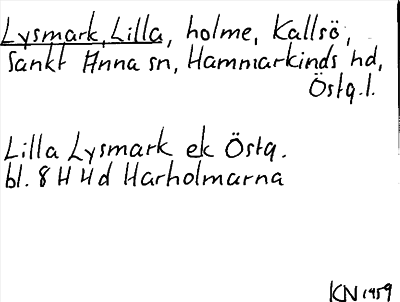 Lysmark, Lilla, holme, Kallsö,
Sankt Anna sn, Hammarkinds hd,
Östg.l.
Lilla Lysmark ek Östg.
bl. 8 H 4d Harholmarna
KN 1959